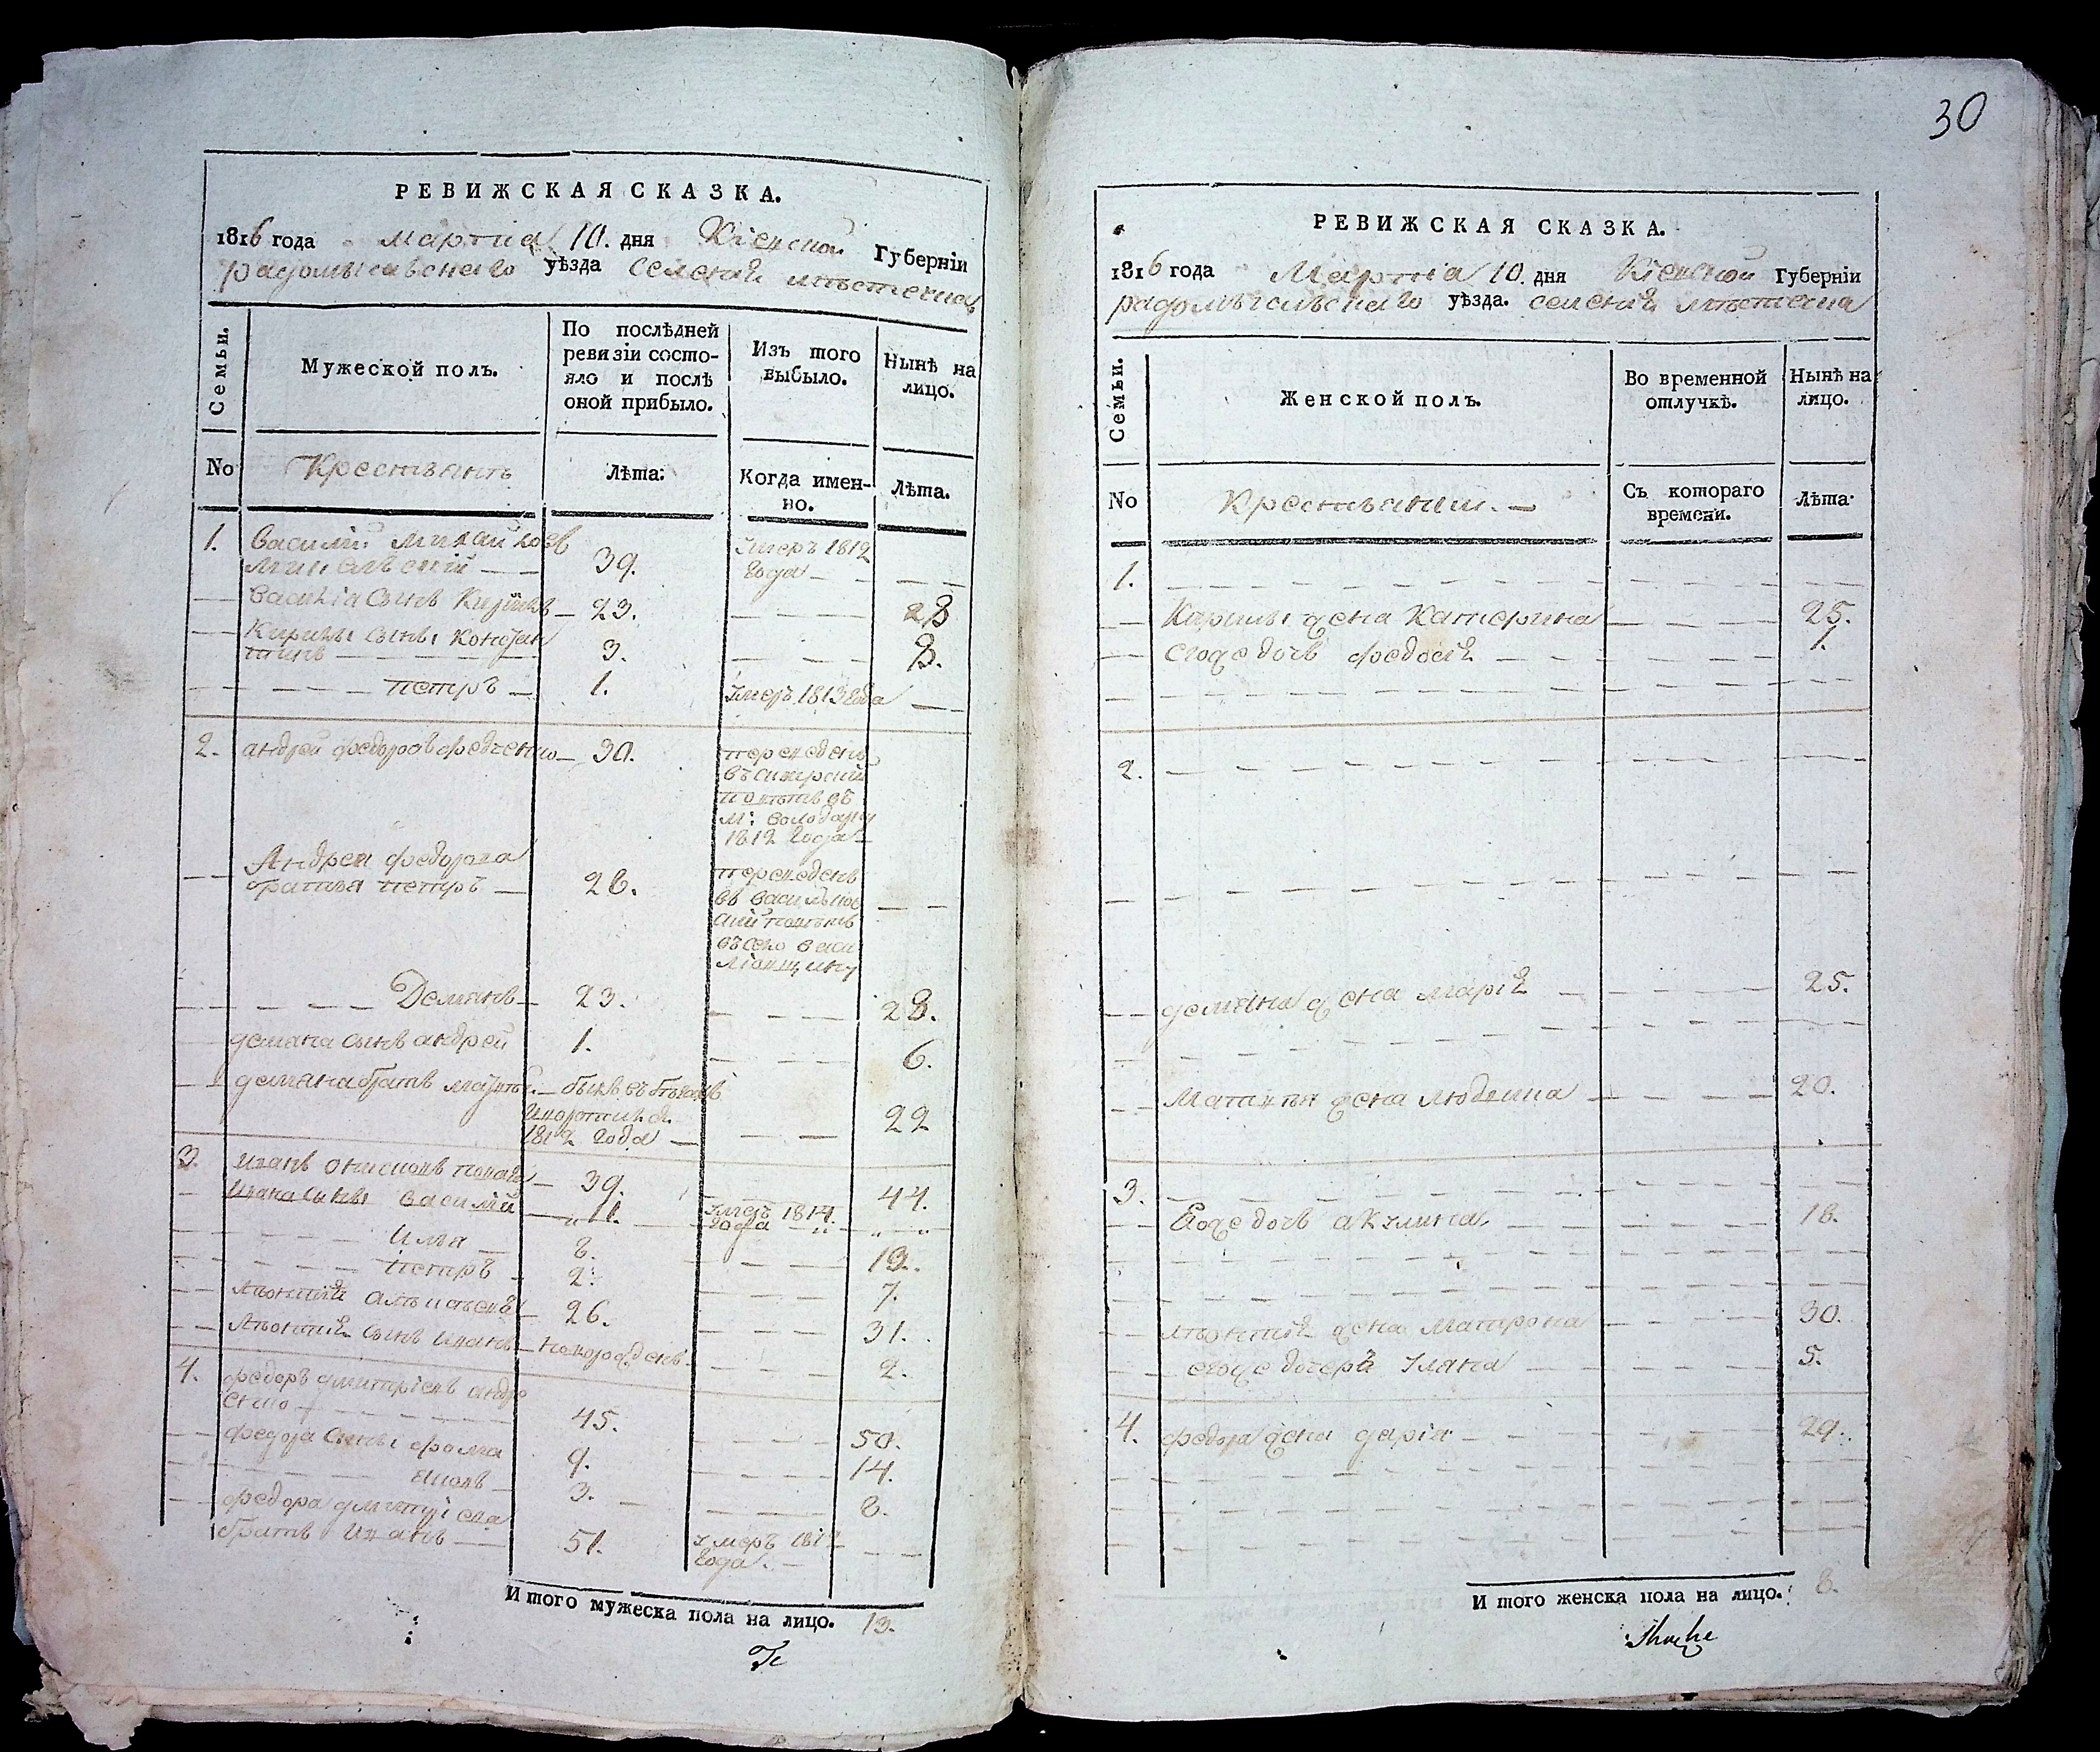 30
РЕВИЖСКАЯ СКАЗКА.
1816 года Марта 10. дня Кіевской Губерніи
радомысльского уѣзда селенія мѣстечка
Семьи.
Мужеской полъ.
По послѣдней ревизіи состо-
яло и послѣ оной прибыло.
Изъ того выбыло.
Нынѣ на лицо.
No
Крестьянъ
Лѣта:
Когда имен-
но.
Лѣта.
1. василій михайловъ 39. умеръ 1812
года
василія сынъ Кирилъ 23. 28
Кирилы сыны констан
тинъ 3. 8.
петръ 1. умеръ 1813 года
2. андрей федоровъ федченко 30. переведенъ
въ сквирскій
повѣтъ въ
м: володарку
1812 года
Андрея федорова
братья петръ 28. переведенъ
въ васильков
скій повѣтъ
въ село
Демянъ 23. 28.
демяна сынъ андрей 1. 6.
демяна братъ матвѣй былъ въ бѣгахъ
и воротился
1812 года 22
3. иванъ 39. 44.
ивана сыны василій 11. умеръ 1814.
года
илья 8. 13.
петръ 2. 7.
26. 31.
сынъ иванъ новорожденъ 2.
4. федоръ дмитріевъ андре
енко 45. 50.
федора сыны фома 9. 14.
яковъ 3. 8.
федора дмитріева
братъ иванъ 51. умеръ 1812
года.
И того мужеска пола на лицо. 13.
РЕВИЖСКАЯ СКАЗКА.
1816 года Марта 10. дня Кіевской Губерніи
радомысльского уѣзда. селенія мѣстечка
Семьи.
Женской полъ.
Во временной отлучкѣ.
Нынѣ на лицо.
No
Крестьянки.
Съ котораго времени.
Лѣта.
1.
Кирилы жена Катерина 25.
егоже дочь федосія 1.
2.
демяна жена марія 25.
Матвѣя жена 20.
3.
Егоже дочь акулина 18.
жена Матрона 30.
егоже дочеръ уляна 5.
4. федора жена дарія 29.
И того женска пола на лицо. 8.